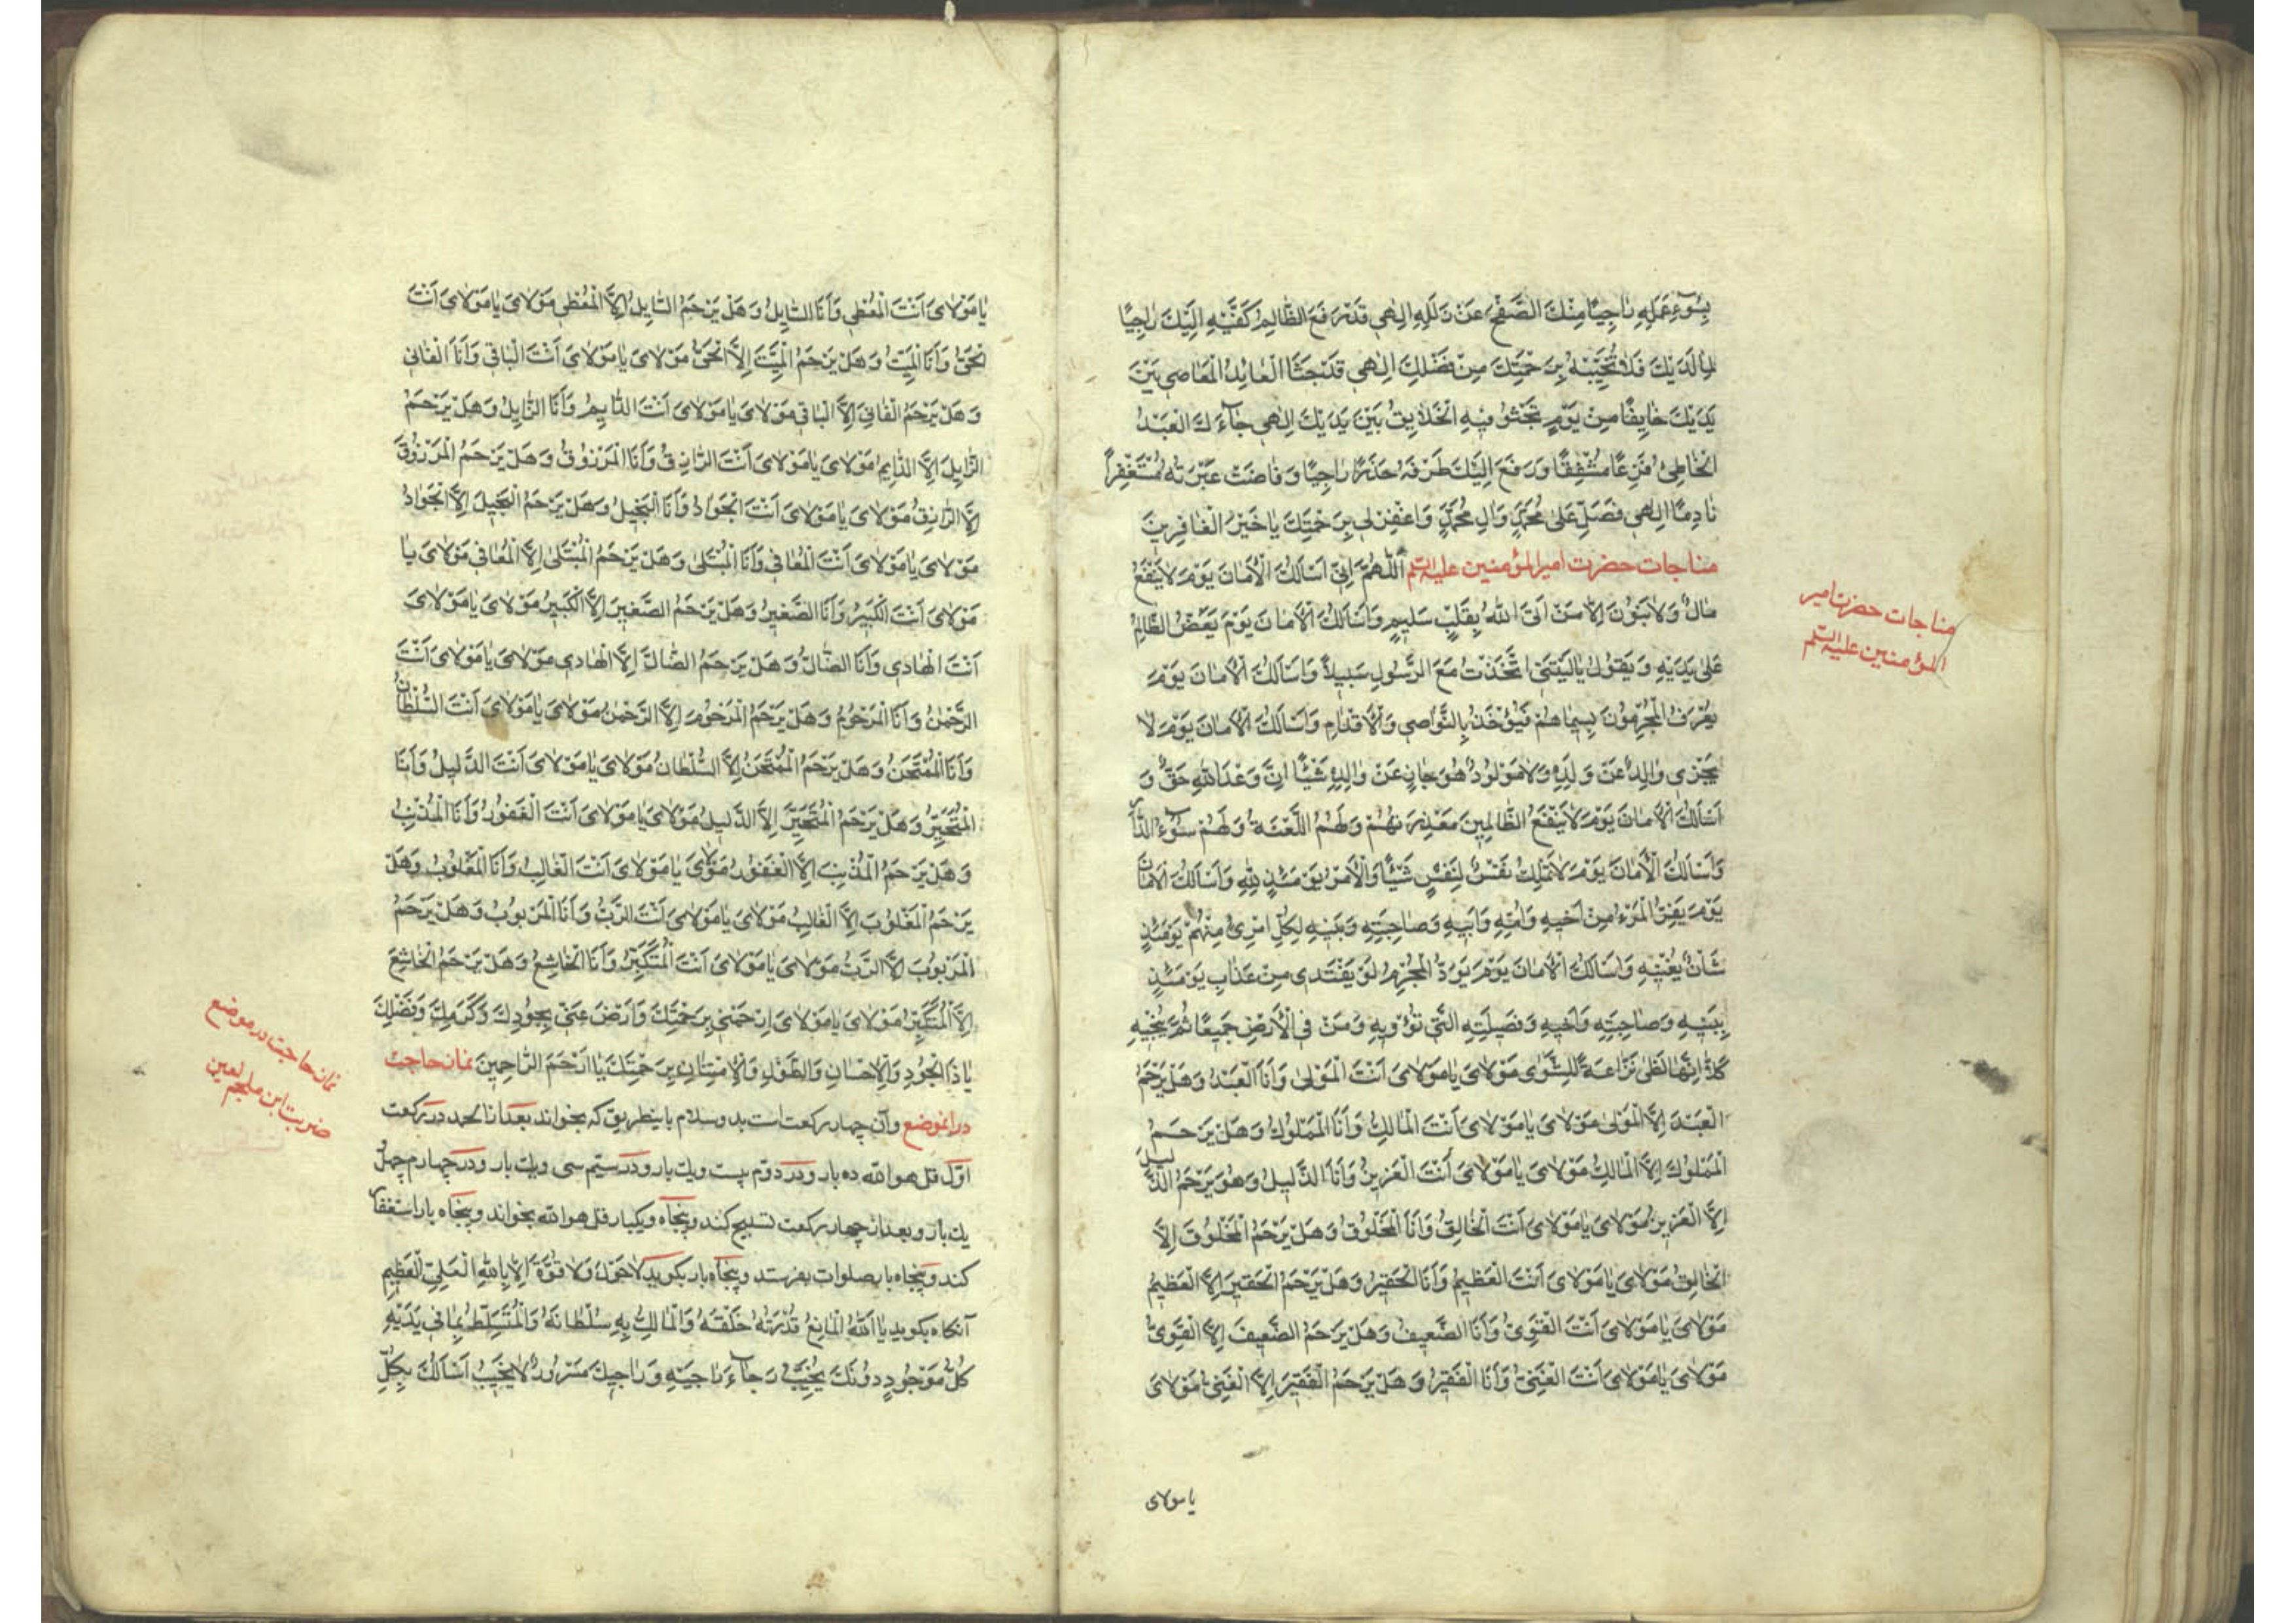 بِسُوۤءِ عَمَلِهِ رَاجِيًا مِنْكَ الصَّفْحَ عَنْ زَلَلِهِ اِلٰهِي قَدْ رَفَعَ الظَّالِمُ كَفَّيْهِ اِلَيْكَ رَاجِيًا
لِمَا لَدَيْكَ فَلَا تُخَيِّبْهُ بِرَحْمَتِكَ مِنْ فَضْلِكَ اِلٰهِي قَدْ جَثَا الْعَائِدُ الْمَعَاصِي بَيْنَ
يَدَيْكَ خَايِفًا مِنْ يَوْمٍ تَجْثُو فِيهِ الْخَلَايِقُ بَيْنَ يَدَيْكَ اِلٰهِي جَاۤءَكَ الْعَبْدُ
الْخَاطِئُ فَزِعًا مُشْفِقًا وَرَفَعَ اِلَيْكَ طَرْفَهُ حَذَرًا رَاجِيًا وَفَاضَتْ عَبْرَتُهُ مُسْتَغْفِراً
نَادِمًا اِلٰهِي فَصَلِّ عَلٰى مُحَمَّدٍ وَاٰلِ مُحَمَّدٍ وَاغْفِرْ لِي بِرَحْمَتِكَ يَا خَيْرَ الْغَافِرِينَ
مناجات حضرت امير المؤمنين عليه السلم اَللّٰهُمَّ اِنِّي اَسْاَلُكَ الْاَمَانَ يَوْمَ لَا يَنْفَعُ
مَالٌ وَلَا بَنُوْنَ اِلَّا مَنْ اَتَى اللهَ بِقَلْبٍ سَلِيمٍ وَاَسْاَلُكَ الْاَمَانَ يَوْمَ يَعَضُّ الظَّالِمُ
عَلٰى يَدَيْهِ وَيَقُولُ يَا لَيْتَنِي اتَّخَذْتُ مَعَ الرَّسُولِ سَبِيلاً وَاَسْاَلُكَ الْاَمَانَ يَوْمَ
يُعْرَفُ الْمُجْرِمُونَ بِسِيمَاهُمْ فَيُؤْخَذُ بِالنَّوَاصِي وَالْاَقْدَامِ وَاَسْاَلُكَ الْاَمَانَ يَوْمَ لَا
يَجْزِي وَالِدٌ عَنْ وَلَدِهِ وَلَا مَوْلُودٌ هُوَ جَازٍ عَنْ وَالِدِهِ شَيْئًا اِنَّ وَعْدَ اللهِ حَقٌّ وَ
اَسْاَلُكَ الْاَمَانَ يَوْمَ لَا يَنْفَعُ الظَّالِمِينَ مَعْذِرَتُهُمْ وَلَهُمُ اللَّعْنَةُ وَلَهُمْ سُوۤءُ الدَّارِ
وَاَسْاَلُكَ الْاَمَانَ يَوْمَ لَا تَمْلِكُ نَفْسٌ لِنَفْسٍ شَيْئًا وَالْاَمْرُ يَوْمَئِذٍ لِلّٰهِ وَاَسْاَلُكَ الْاَمَانَ
يَوْمَ يَفِرُّ الْمَرْءُ مِنْ اَخِيهِ وَاُمِّهِ وَاَبِيهِ وَصَاحِبَتِهِ وَبَنِيهِ لِكُلِّ امْرِئٍ مِنْهُمْ يَوْمَئِذٍ
شَاْنٌ يُغْنِيهِ وَاَسْاَلُكَ الْاَمَانَ يَوْمَ يَوَدُّ الْمُجْرِمُ لَوْ يَفْتَدِي مِنْ عَذَابِ يَوْمَئِذٍ
بِبَنِيهِ وَصَاحِبَتِهِ وَاَخِيهِ وَفَصِيلَتِهِ الَّتِي تُؤْوِيهِ وَمَنْ فِي الْاَرْضِ جَمِيعًا ثُمَّ يُنْجِيهِ
كَلَّا اِنَّهَا لَظٰى نَزَّاعَةً لِلشَّوٰى مَوْلَايَ يَا مَوْلَايَ اَنْتَ الْمَوْلٰى وَاَنَا الْعَبْدُ وَهَلْ يَرْحَمُ
الْعَبْدَ اِلَّا الْمَوْلٰى مَوْلَايَ يَا مَوْلَايَ اَنْتَ الْمَالِكُ وَاَنَا الْمَمْلُوكُ وَهَلْ يَرْحَمُ
الْمَمْلُوكَ اِلَّا الْمَالِكُ مَوْلَايَ يَا مَوْلَايَ اَنْتَ الْعَزِيزُ وَاَنَا الذَّلِيلُ وَهُوَ يَرْحَمُ الذَّلِيلَ
اِلَّا الْعَزِيزُ مَوْلَايَ يَا مَوْلَايَ اَنْتَ الْخَالِقُ وَاَنَا الْمَخْلُوقُ وَهَلْ يَرْحَمُ الْمَخْلُوقَ اِلَّا
الْخَالِقُ مَوْلَايَ يَا مَوْلَايَ اَنْتَ الْعَظِيمُ وَاَنَا الْحَقِيرُ وَهَلْ يَرْحَمُ الْحَقِيرَ اِلَّا الْعَظِيمُ
مَوْلَايَ يَا مَوْلَايَ اَنْتَ الْقَوِيُّ وَاَنَا الضَّعِيفُ وَهَلْ يَرْحَمُ الضَّعِيفَ اِلَّا الْقَوِيُّ
مَوْلَايَ يَا مَوْلَايَ اَنْتَ الْغَنِيُّ وَاَنَا الْفَقِيرُ وَهَلْ يَرْحَمُ الْفَقِيرَ اِلَّا الْغَنِيُّ مَوْلَايَ
يا مولاى
مناجات حضرت امير
المؤمنين عليه السلم
يَا مَوْلَايَ اَنْتَ الْمُعْطِي وَاَنَا السَّايِلُ وَهَلْ يَرْحَمُ السَّايِلَ اِلَّا الْمُعْطِي مَوْلَايَ يَا مَوْلَايَ اَنْتَ
الْحَيُّ وَاَنَا الْمَيِّتُ وَهَلْ يَرْحَمُ الْمَيِّتَ اِلَّا الْحَيُّ مَوْلَايَ يَا مَوْلَايَ اَنْتَ الْبَاقِي وَاَنَا الْفَانِي
وَهَلْ يَرْحَمُ الْفَانِيَ اِلَّا الْبَاقِي مَوْلَايَ يَا مَوْلَايَ اَنْتَ الدَّايِمُ وَاَنَا الزَّايِلُ وَهَلْ يَرْحَمُ
الزَّايِلَ اِلَّا الدَّايِمُ مَوْلَايَ يَا مَوْلَايَ اَنْتَ الرَّازِقُ وَاَنَا الْمَرْزُوقُ وَهَلْ يَرْحَمُ الْمَرْزُوقَ
اِلَّا الرَّازِقُ مَوْلَايَ يَا مَوْلَايَ اَنْتَ الْجَوَادُ وَاَنَا الْبَخِيلُ وَهَلْ يَرْحَمُ الْبَخِيلَ اِلَّا الْجَوَادُ
مَوْلَايَ يَا مَوْلَايَ اَنْتَ الْمُعَافِي وَاَنَا الْمُبْتَلٰى وَهَلْ يَرْحَمُ الْمُبْتَلٰى اِلَّا الْمُعَافِي مَوْلَايَ يَا
مَوْلَايَ اَنْتَ الْكَبِيرُ وَاَنَا الصَّغِيرُ وَهَلْ يَرْحَمُ الصَّغِيرَ اِلَّا الْكَبِيرُ مَوْلَايَ يَا مَوْلَايَ
اَنْتَ الْهَادِي وَاَنَا الضَّالُّ وَهَلْ يَرْحَمُ الضَّالَّ اِلَّا الْهَادِي مَوْلَايَ يَا مَوْلَايَ اَنْتَ
الرَّحْمٰنُ وَاَنَا الْمَرْحُومُ وَهَلْ يَرْحَمُ الْمَرْحُومَ اِلَّا الرَّحْمٰنُ مَوْلَايَ يَا مَوْلَايَ اَنْتَ السُّلْطَانُ
وَاَنَا الْمُمْتَحَنُ وَهَلْ يَرْحَمُ الْمُمْتَحَنَ اِلَّا السُّلْطَانُ مَوْلَايَ يَا مَوْلَايَ اَنْتَ الدَّلِيلُ وَاَنَا
الْمُتَحَيِّرُ وَهَلْ يَرْحَمُ الْمُتَحَيِّرَ اِلَّا الدَّلِيلُ مَوْلَايَ يَا مَوْلَايَ اَنْتَ الْغَفُورُ وَاَنَا الْمُذْنِبُ
وَهَلْ يَرْحَمُ الْمُذْنِبَ اِلَّا الْغَفُورُ مَوْلَايَ يَا مَوْلَايَ اَنْتَ الْغَالِبُ وَاَنَا الْمَغْلُوبُ وَهَلْ
يَرْحَمُ الْمَغْلُوبَ اِلَّا الْغَالِبُ مَوْلَايَ يَا مَوْلَايَ اَنْتَ الرَّبُّ وَاَنَا الْمَرْبُوبُ وَهَلْ يَرْحَمُ
الْمَرْبُوبَ اِلَّا الرَّبُّ مَوْلَايَ يَا مَوْلَايَ اَنْتَ الْمُتَكَبِّرُ وَاَنَا الْخَاشِعُ وَهَلْ يَرْحَمُ الْخَاشِعَ
اِلَّا الْمُتَكَبِّرُ مَوْلَايَ يَا مَوْلَايَ اِرْحَمْنِي بِرَحْمَتِكَ وَارْضَ عَنِّي بِجُودِكَ وَكَرَمِكَ وَفَضْلِكَ
يَا ذَا الْجُودِ وَالْاِحْسَانِ وَالطَّوْلِ وَالْاِمْتِنَانِ بِرَحْمَتِكَ يَا اَرْحَمَ الرَّاحِمِينَ نماز حاجت
در انموضع وآن چهار ركعت است بدو سلام باينطريق كه بخواند بعد از الحمد در ركعت
اول قل هو الله ده بار ودر دوم بيست ويك بار ودر سيم سى ويك بار ودر چهارم چهل
يك بار وبعد از چهار ركعت تسبيح كند وپنجاه ويكبار قل هو الله بخواند وپنجاه بار استغفار
كند وپنجاه بار صلوات بفرستد وپنجاه بار بكويد لَا حَوْلَ وَلَا قُوَّةَ اِلَّا بِاللهِ الْعَلِيِّ الْعَظِيمِ
آنكاه بكويد يَا اَللهُ الْمَانِعُ قُدْرَتُهُ خَلْقَهُ وَالْمَالِكُ بِهِ سُلْطَانَهُ وَالْمُتَسَلِّطُ بِمَا فِي يَدَيْهِ
كُلُّ مَوْجُودٍ دُونَكَ يُخَيِّبُ رَجَاۤءَ رَاجِيهِ وَرَاجِيكَ مَسْرُورٌ لَا يَخِيبُ اَسْاَلُكَ بِكُلِّ
نماز حاجت در موضع
ضربت ابن ملجم لعين